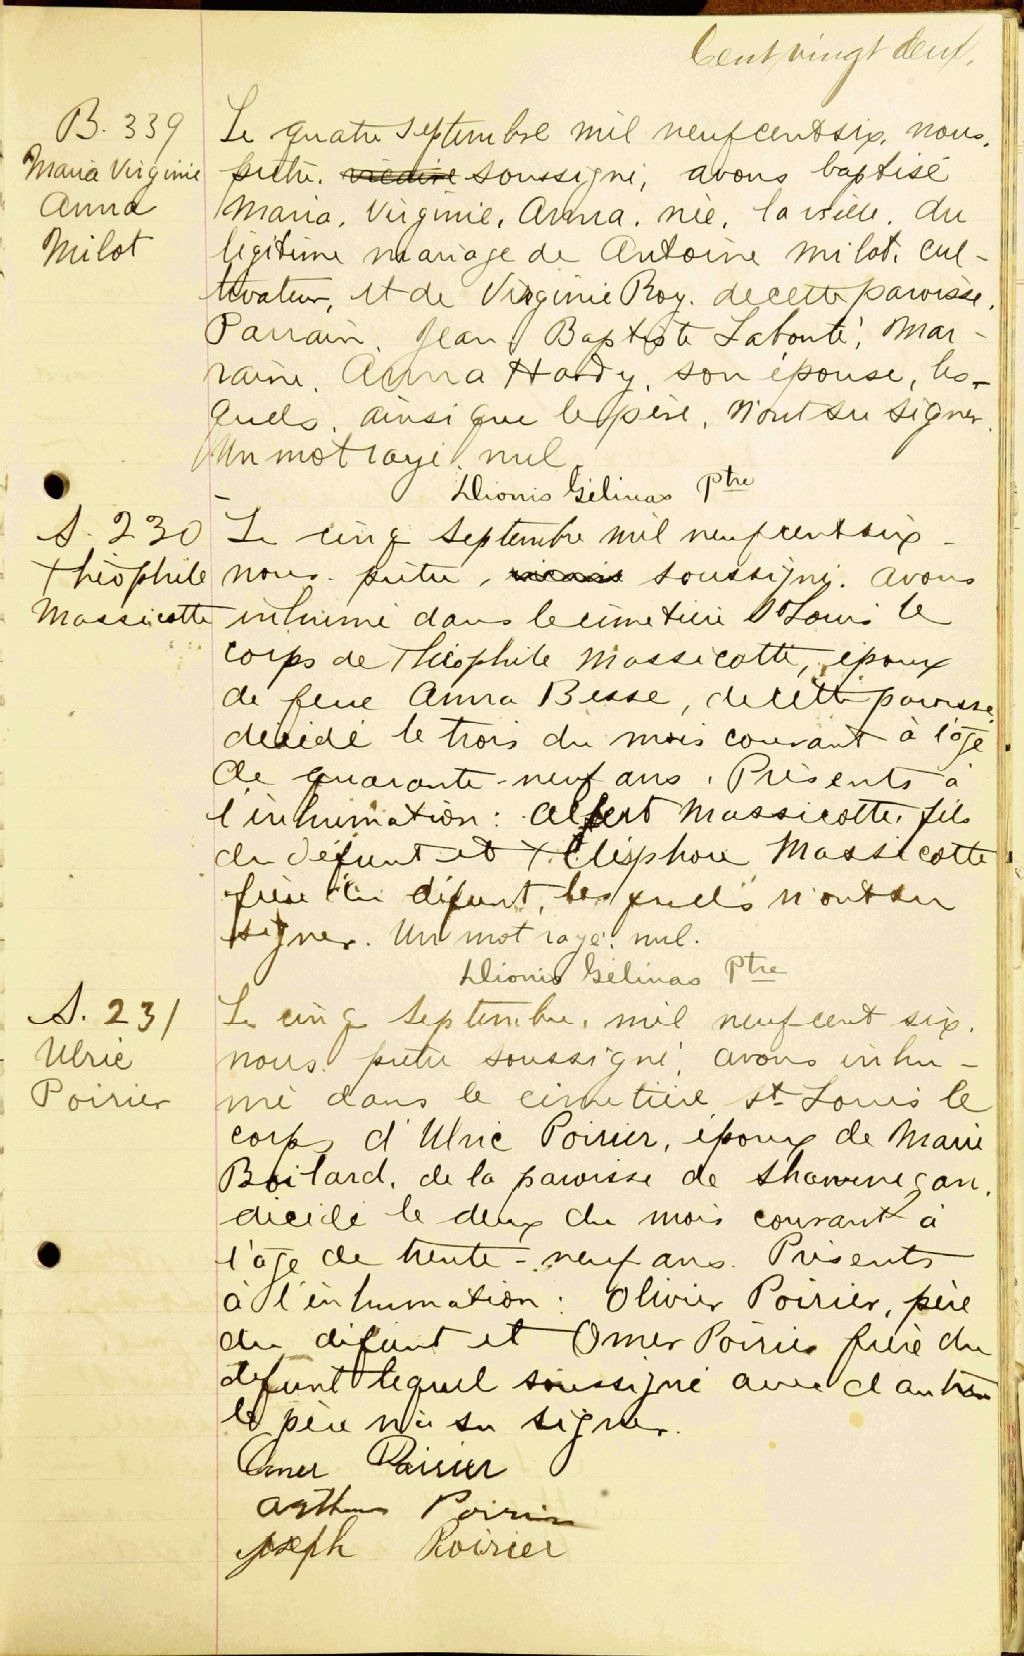 Cent vingt deux.
B. 339
Maria Virginie
Anna
Milot
Le quatre septembre mil neuf cent six, nous,
prêtre, vicaire soussigné, avons baptisé
Maria, Virginie, Anna, née, la veille, du
légitime mariage de Antoine Milot, cul-
tivateur, et de Virginie Roy, de cette paroisse.
Parrain, Jean Baptiste Labonté, Mar-
raine, Anna Hardy, son épouse, les-
quels, ainsi que le père, n'ont su signer.
Un mot rayé, nul.
Dionis Gélinas Ptre
S. 230
Théophile
Massicotte
Le cinq septembre mil neuf cent six
nous, prêtre, vicaire soussigné, avons
inhumé dans le cimetière St Louis le
corps de Théophile Massicotte, époux
de feue Anna Besse, de cette paroisse,
décédé le trois du mois courant à l'âge
de quarante-neuf ans. Présents à
l'inhumation: Albert Massicotte, fils
du défunt et Télesphore Massicotte
frère du défunt, lesquels n'ont su
signer. Un mot rayé, nul.
Dionis Gélinas Ptre
S. 231
Ulric
Poirier
Le cinq septembre, mil neuf-cent six,
nous, prêtre soussigné, avons inhu-
mé dans le cimetière St Louis le
corps d'Ulric Poirier, époux de Marie
Boilard, de la paroisse de Shawenegan,
décédé le deux du mois courant à
l'âge de trente-neuf ans. Présents
à l'inhumation: Olivier Poirier, père
du défunt et Omer Poirier frère du
défunt lequel soussigné avec d'autres
le père n'a su signer.
Omer Poirier
Arthur Poirier
Joseph Poirier